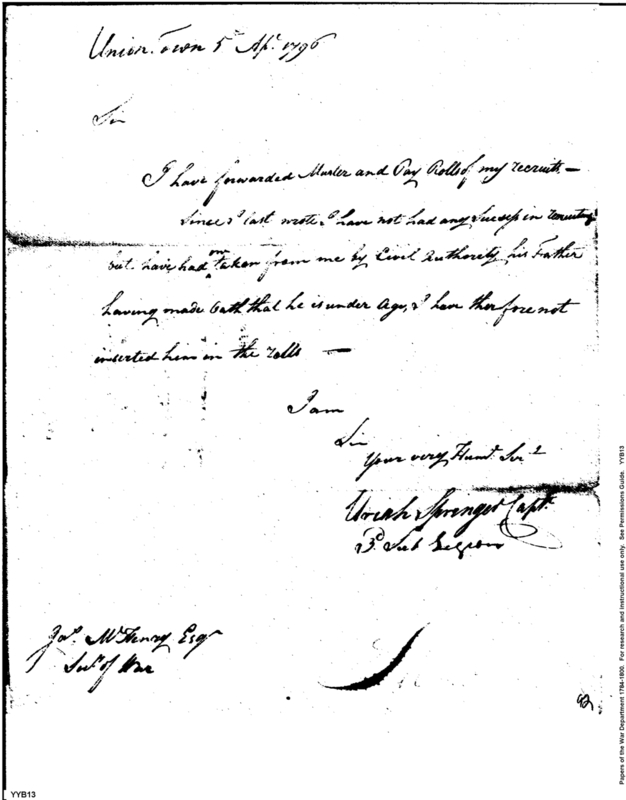 Union Town 5th Apl. 1796
Sir
I have forwarded Muster and Pay Rolls of my recruits. —
Since I last wrote I have not had any Success in recruiting
but have had one taken from me by Civil Authority his Father
having made Oath that he is under Age, I have therefore not
inserted him in the rolls —
I am
Sir
Your very Humb. Servt
Uriah Springer Capt.
3d. Sub Legion
Jas. McHenry Esqr
Secy. of War
YYB13
Papers of the War Department 1784-1800. For research and instructional use only. See Permissions Guide. YYB13